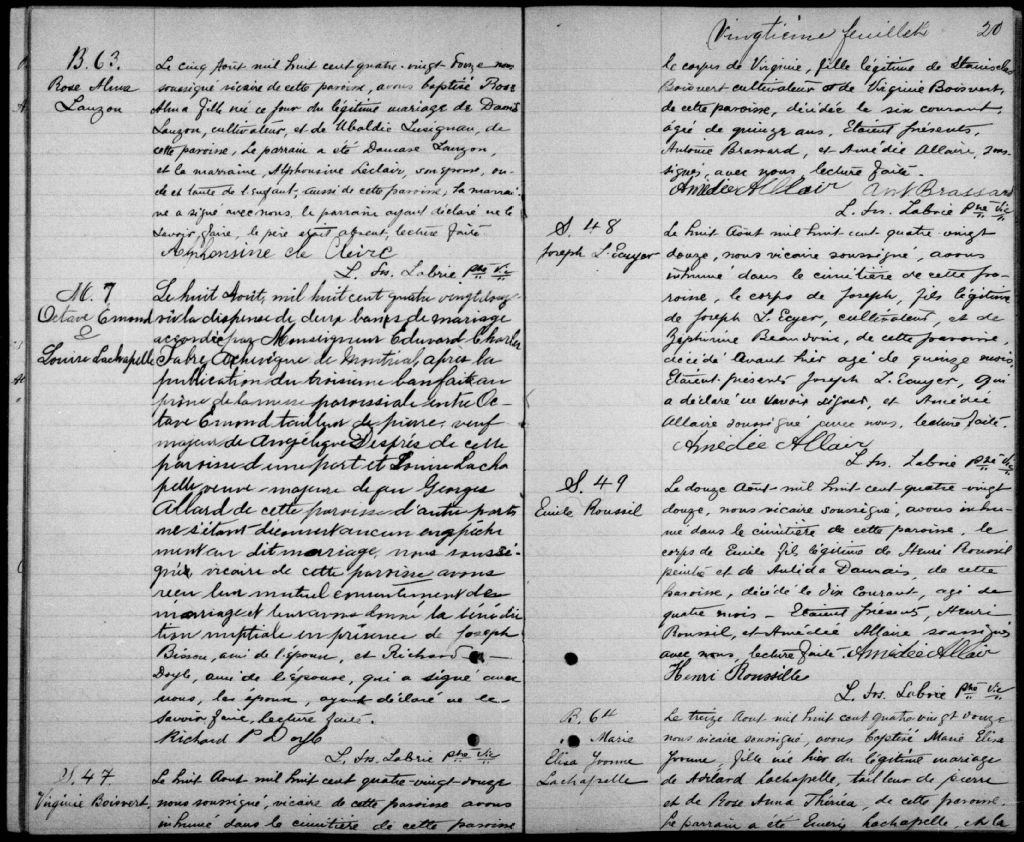 B. 63.
Rose Alma
Lauzon
Le cinq Août mil huit cent quatre-vingt douze nous
soussigné vicaire de cette paroisse, avons baptisé Rose
Alma fille née ce jour du légitime mariage de Damase
Lauzon, cultivateur, et de Ubaldie Lusignan, de
cette paroisse, Le parrain a été Damase Lauzon,
et la marraine, Alphonsine Leclair, son épouse, on-
cle et tante de l'enfant, aussi de cette paroisse, La marrai-
ne a signé avec nous, le parrain ayant déclaré ne le
savoir faire, le père était absent, lecture faite.
Alphonsine
L. Jos. Labrie ptre Vic
M. 7
Octave Emond
&
Louise Lachapelle
Le huit Août, mil huit cent quatre vingt douze
vu la dispense de deux bans de mariage
accordée par Monseigneur Edouard Charles
Fabre Archevêque de Montréal, après la
publication du troisième ban fait au
prône de la messe paroissiale entre Oc-
tave Emond tailleur de pierre, veuf
majeur de Angélique Després de cette
paroisse d'une part et Louise Lacha
pelle veuve majeure de feu Georges
Allard de cette paroisse d'autre part
ne s'étant découvert aucun empêche
ment au dit mariage, nous soussi-
gné vicaire de cette paroisse avons
reçu leur mutuel consentement de
mariage et leur avons donné la bénédic
tion nuptiale en présence de Joseph
Bisson, ami de l'époux, et Richard
Doyle, ami de l'épouse, qui a signé avec
nous, les époux, ayant déclaré ne le
savoir faire, lecture faite.
Richard P Doyle
L. Jos. Labrie ptre Vic
S. 47
Virginie Boisvert
Le huit Août mil huit cent quatre-vingt douze
nous soussigné, vicaire de cette paroisse avons
inhumé dans le cimetière de cette paroisse
Vingtième feuillet 20
le corps de Virginie, fille légitime de Stanislas
Boisvert cultivateur & de Virginie Boisvert,
de cette paroisse, décédée le six courant,
âgée de quinze ans, Etaient présents,
Antoine Brassard, et Amédée Allaire, sous-
signés, avec nous, lecture faite.
Amédée Allair Ant Brassard
L. Jos. Labrie Ptre Vic
S. 48
Joseph L'Ecuyer
Le huit Août mil huit cent quatre-vingt
douze, nous vicaire soussigné, avons
inhumé dans le cimitière de cette pa-
roisse, le corps de Joseph, fils légitime
de Joseph L'Ecyer, cultivateur, et de
Zéphirine Beaudoin, de cette paroisse,
décédé avant hier agé de quinze mois,
Etaient présents Joseph L'Ecuyer, qui
a déclaré ne savoir signer, et Amédée
Allaire soussigné avec nous, lecture faite.
Amédée Allair
L. Jos. Labrie ptre Vic
S. 49
Emile Roussil
Le douze Août mil huit cent quatre-vingt
douze, nous vicaire soussigné, avons inhu-
mé dans le cimitière de cette paroisse, le
corps de Emile fils légitime de Henri Roussil
peintre et de Aulida Daunais, de cette
paroisse, décédé le dix courant, agé de
quatre mois - Etaient présent, Henri
Roussil, et Amédée Allaire soussignés
avec nous, lecture faite. Amédée Allair
Henri Roussille
L. Jos. Labrie ptre Vic
B. 64
Marie
Elisa Yvonne
Lachapelle
Le treize Aout mil huit cent quatre vingt douze
nous vicaire soussigné, avons baptisé Marie Elisa
Yvonne, fille née hier du légitime mariage
de Adélard Lachapelle, tailleur de pierre
et de Rose Anna, de cette paroisse.
Le parrain a été Emery Lachapelle, et la